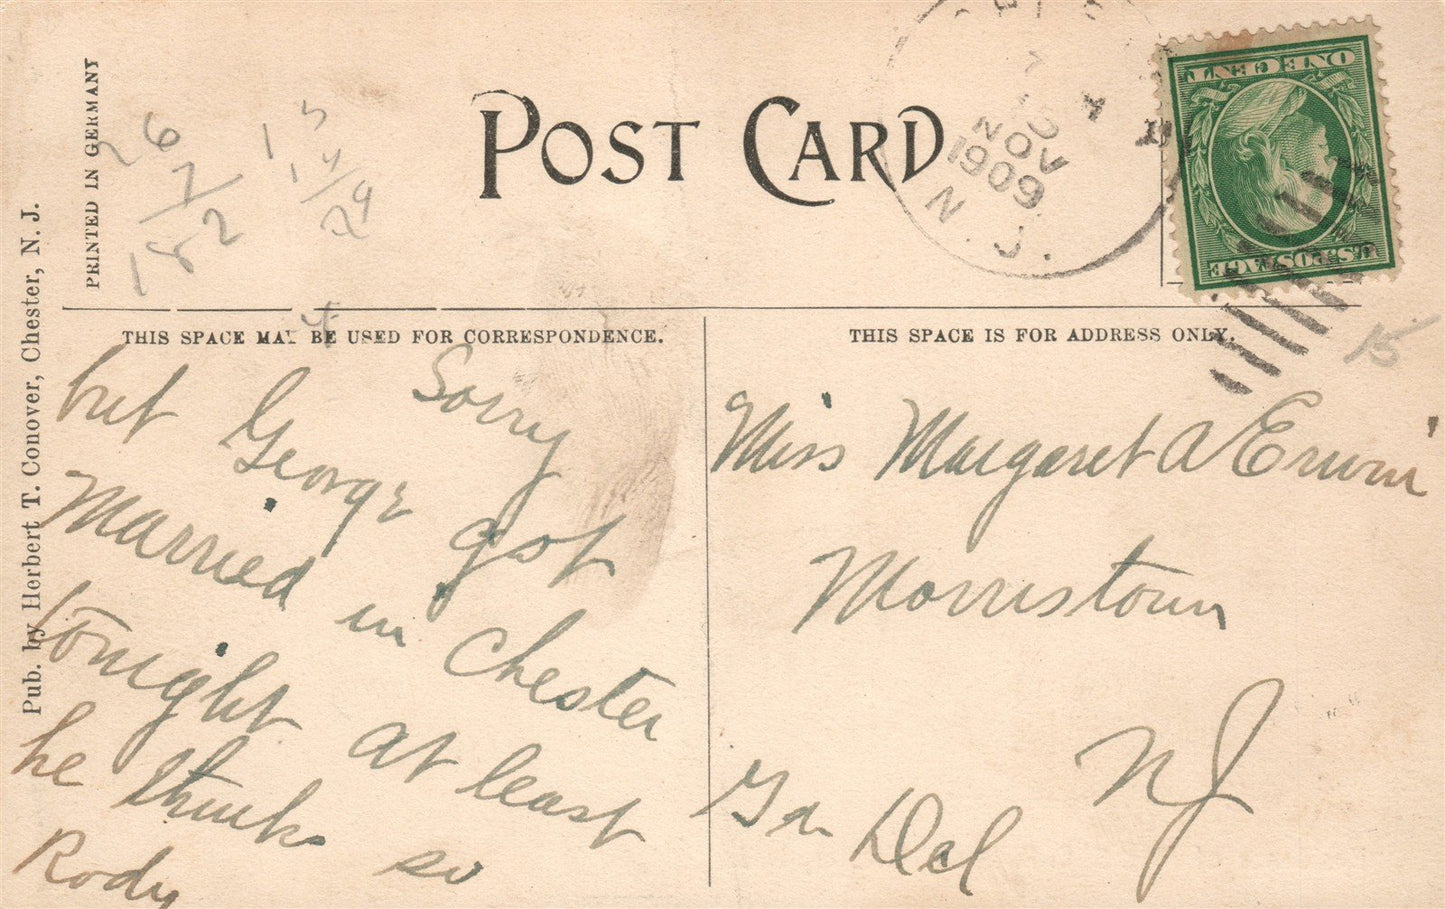 POST CARD
PRINTED IN GERMANY
Pub. by Herbert T. Conover, Chester, N. J.
26
7
182
NOV
1909
N. J.
ONE CENT
U.S. POSTAGE
THIS SPACE MAY BE USED FOR CORRESPONDENCE.
THIS SPACE IS FOR ADDRESS ONLY.
15
Sorry
but George got
Married in Chester
tonight at least
he thinks so
Rody
Miss Margaret A Erwin
Morristown
NJ
Gen Del